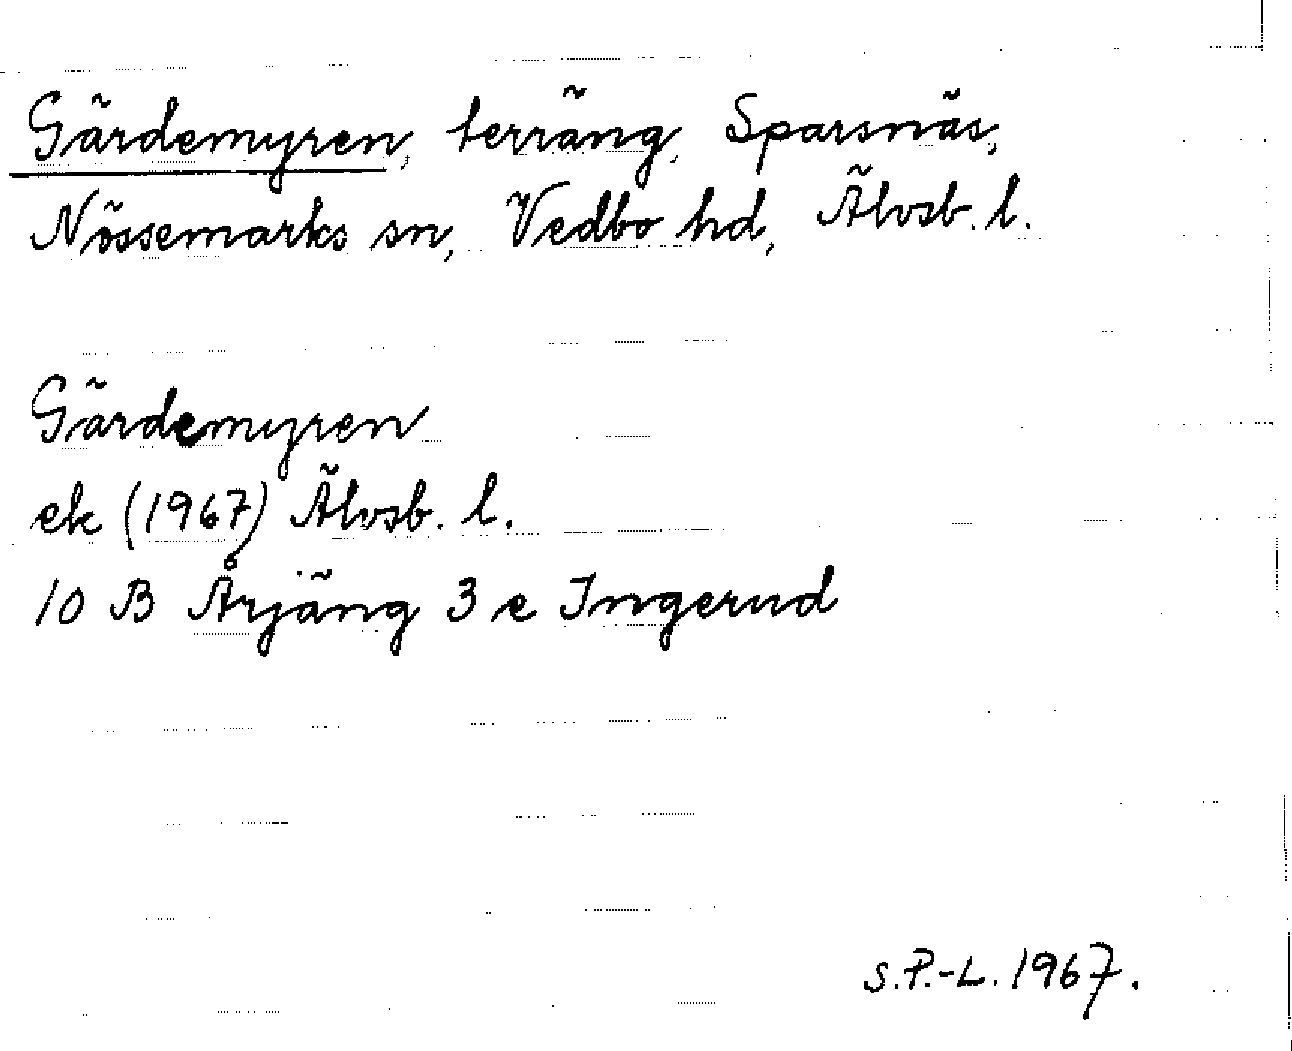 Gärdemyren, terräng, Sparsnäs,
Nössemarks sn, Vedbo hd, Älvsb. l.
Gärdemyren
ek (1967) Älvsb. l.
10 B Årjäng 3 e Ingerud
S.P.-L. 1967.